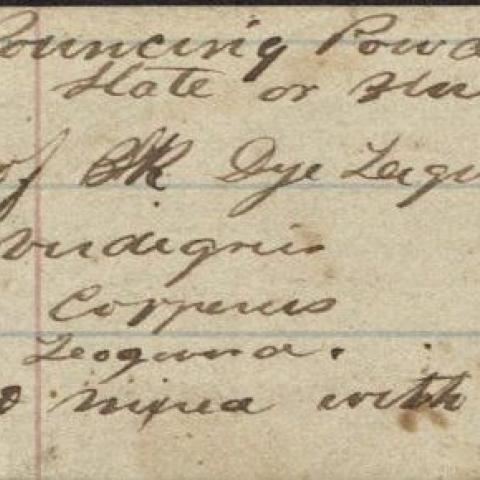 Pouncing Powd
Slate or
of BK Dye Lequ
Verdegris
Copperus
Leoguna.
mixed with